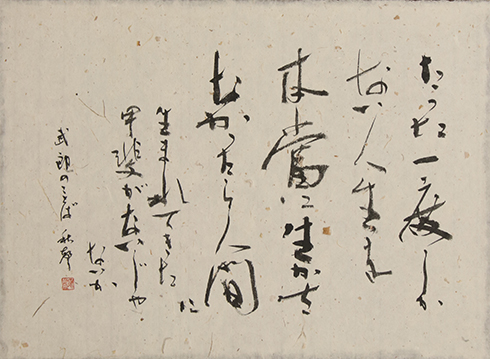 たった一度しか
ない人生を
本当に生かさ
なかったら人間
に
生まれてきた
甲斐がないじゃ
ないか
武郎のことば 秋邨